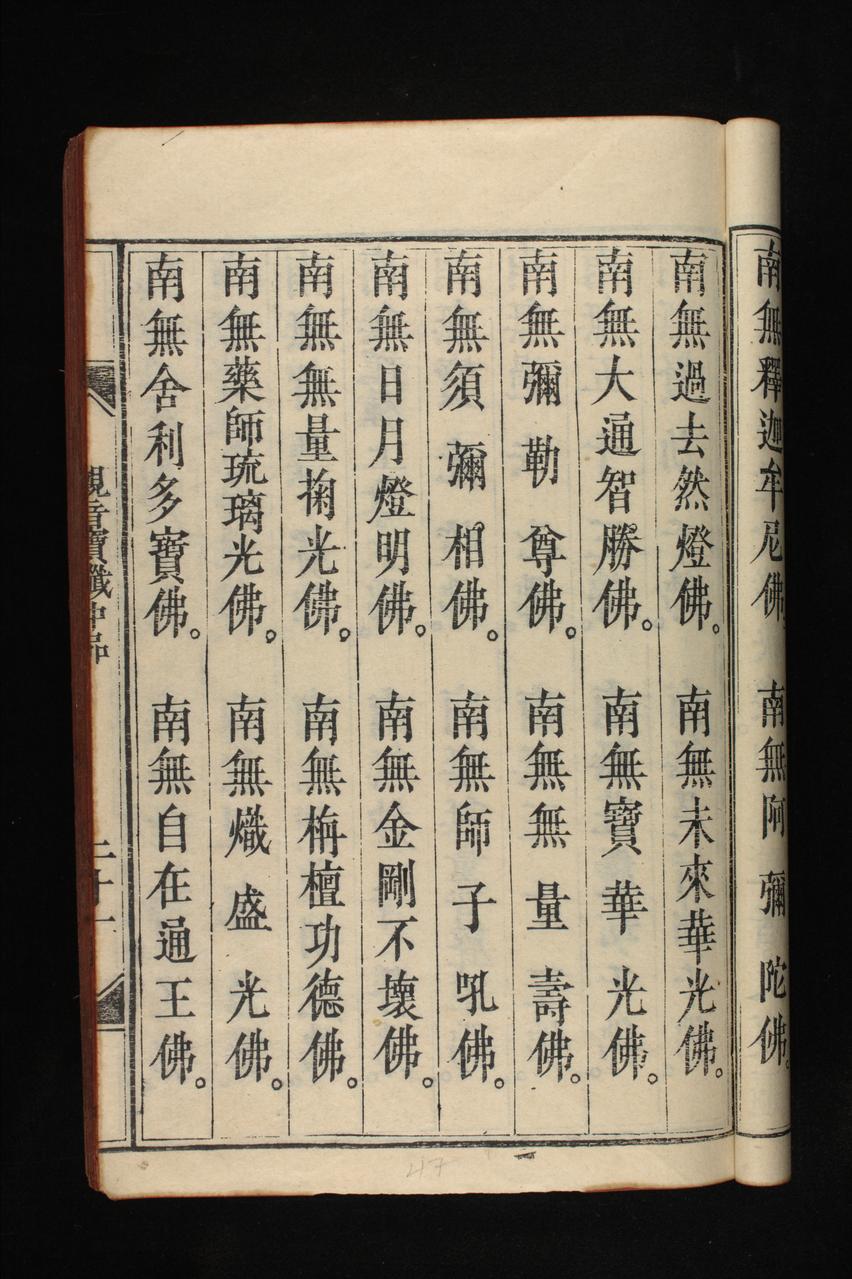 南無釋迦牟尼佛。 南無阿彌陀佛。
南無過去然燈佛。 南無未來華光佛。
南無大通智勝佛。 南無寶華光佛。
南無彌勒尊佛。 南無無量壽佛。
南無須彌相佛。 南無師子吼佛。
南無日月燈明佛。 南無金剛不壞佛。
南無無量掬光佛。 南無栴檀功德佛。
南無藥師琉璃光佛。 南無熾盛光佛。
南無舍利多寶佛。 南無自在通王佛。
觀音寶懺中品 二十一
47